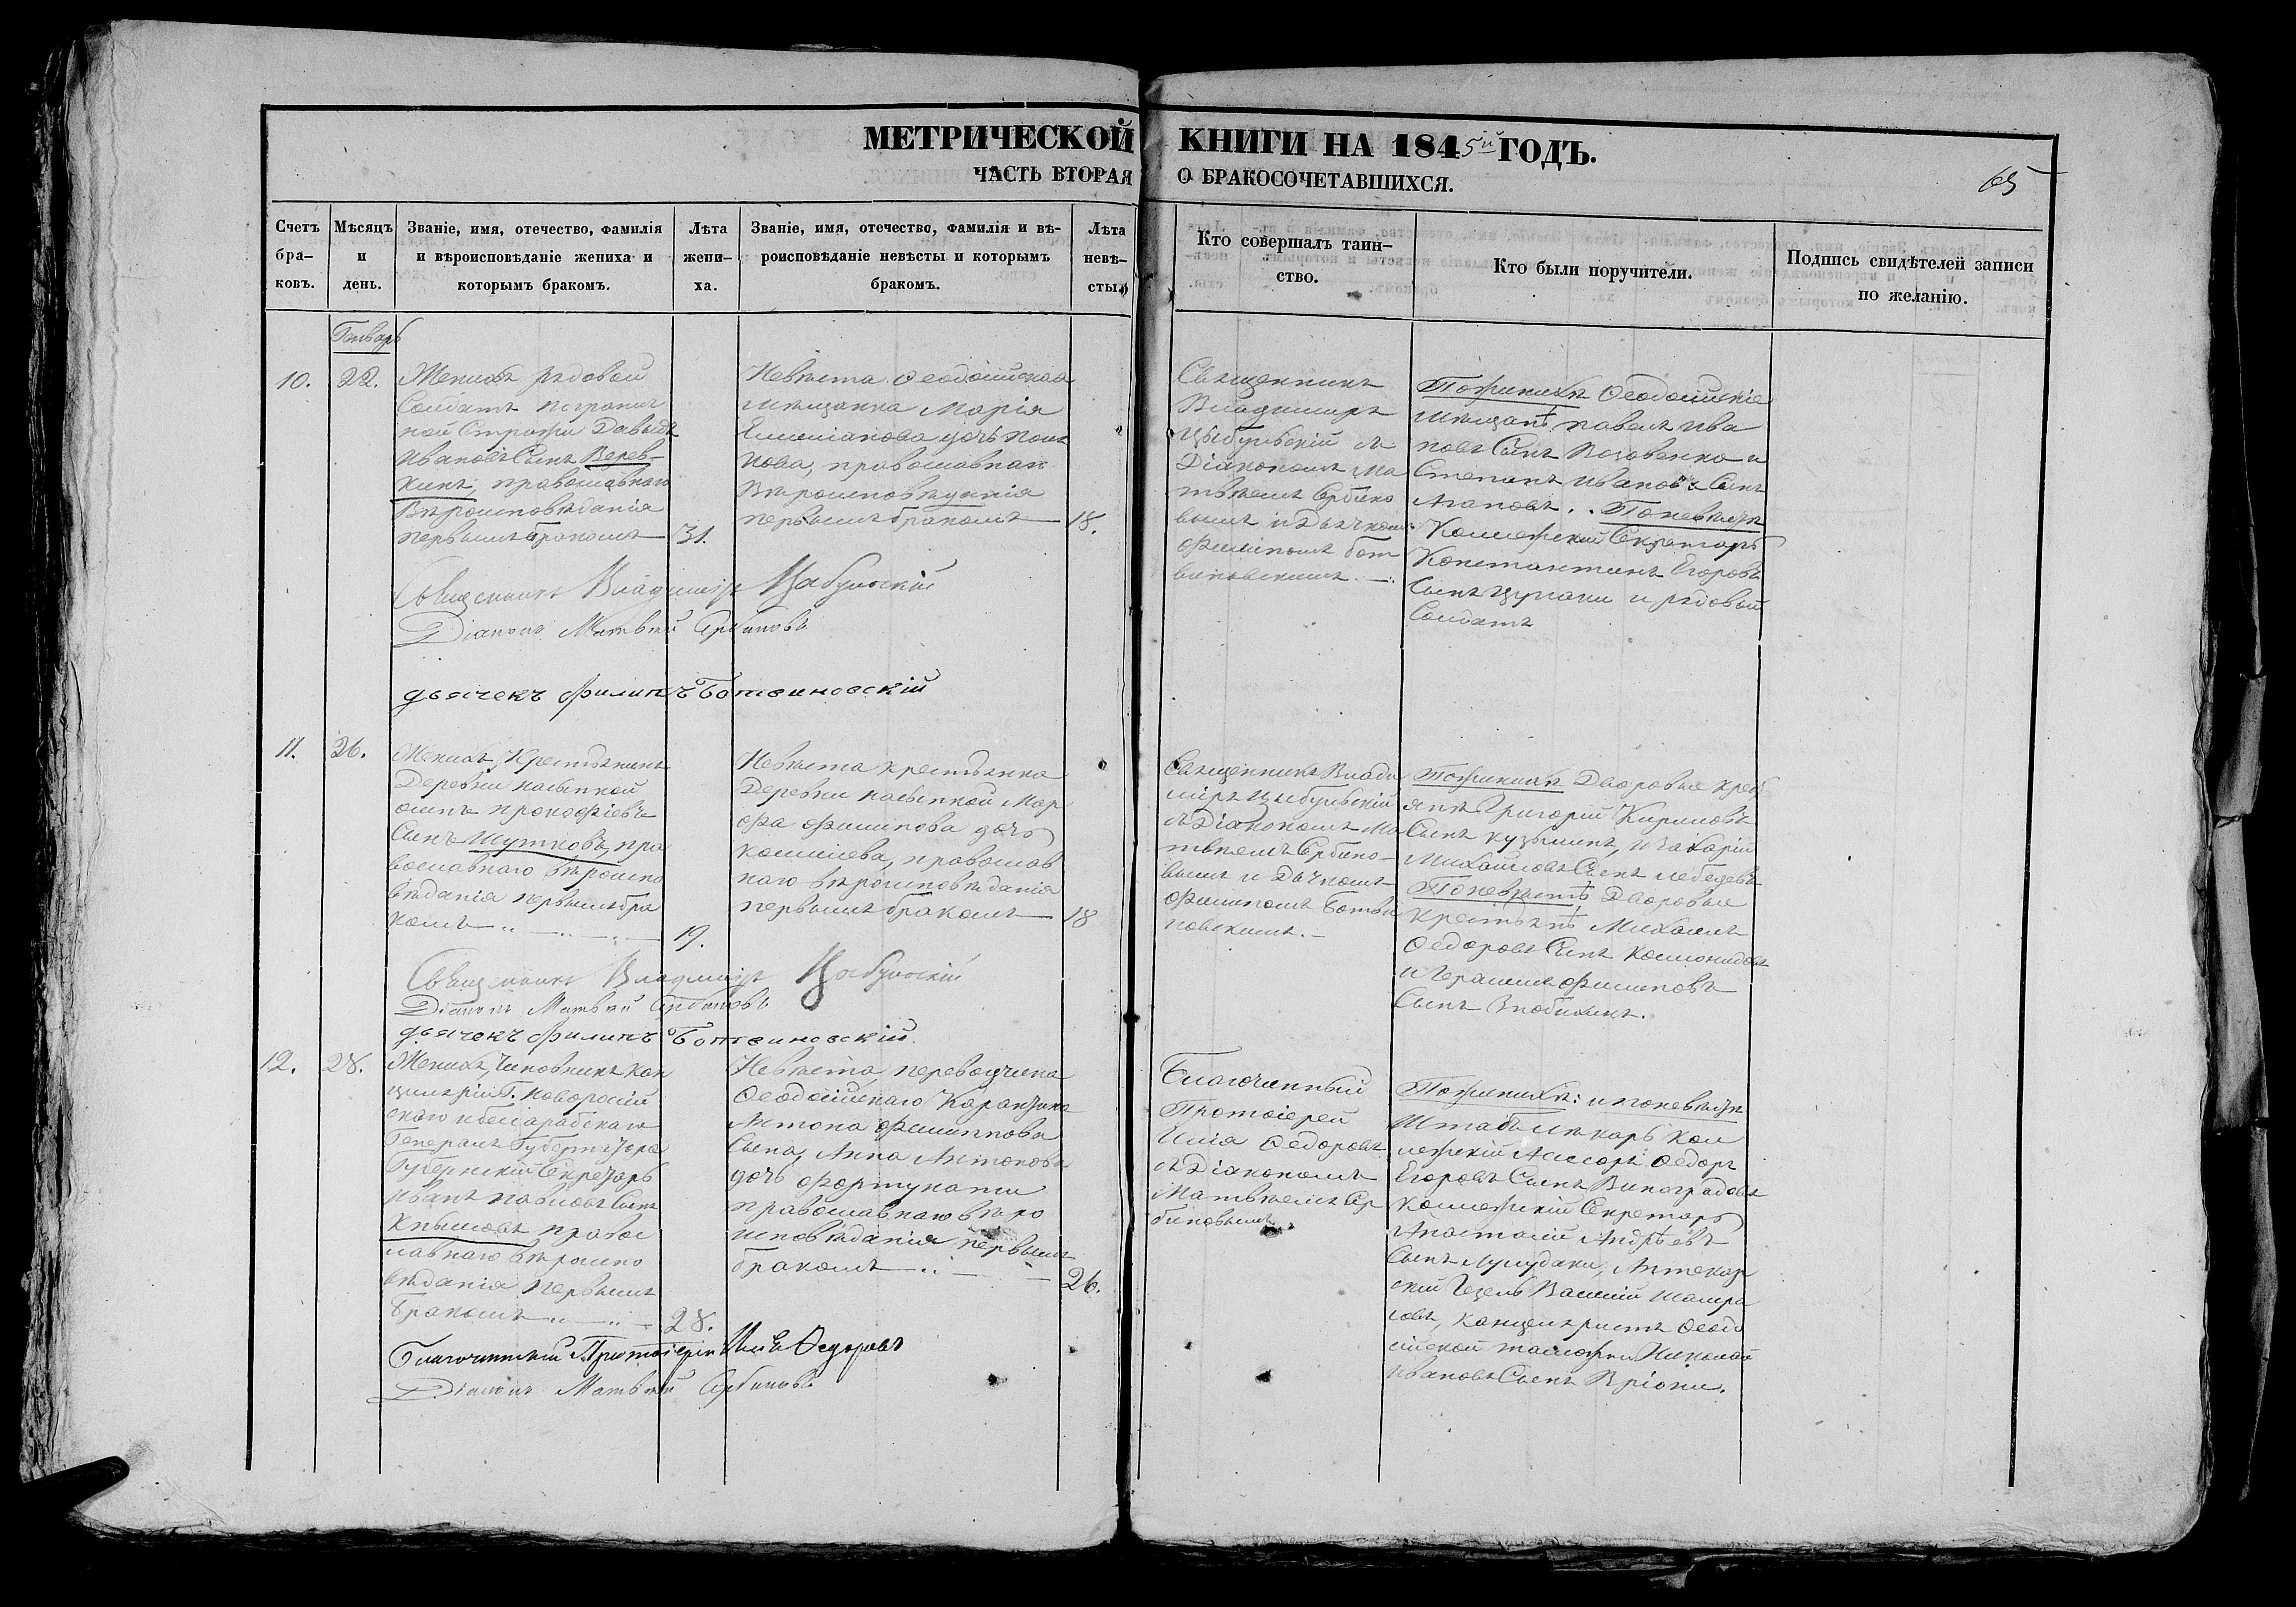 МЕТРИЧЕСКОЙ КНИГИ НА 1845й ГОДЪ.
ЧАСТЬ ВТОРАЯ О БРАКОСОЧЕТАВШИХСЯ.
65
Счетъ бра-ковъ.
Мѣсяцъ и день.
Званіе, имя, отечество, фамилія и вѣроисповѣданіе жениха и которымъ бракомъ.
Лѣта жени-ха.
Званіе, имя, отечество, фамилія и вѣ-роисповѣданіе невѣсты и которымъ бракомъ.
Лѣта невѣ-сты.
Кто совершалъ таин-ство.
Кто были поручители.
Подпись свидѣтелей записи по желанію.
Генварь
10.
22.
Женихъ рядовой
Солдатъ погранич
ной Стражи Давыдъ
Ивановъ Сынъ Верев-
кинъ, православнаго
Вѣроисповѣданія
первымъ бракомъ
31.
Невѣста Ѳеодосійская
мѣщанка Марія
Емелианова дочь
православнаго
Вѣроисповѣданія
первымъ бракомъ
18.
Священникъ
Владимиръ
Цыбульскій съ
Діакономъ Ма
твѣемъ Сербино
вымъ и Дьячкомъ
Филипомъ Бот
виновскимъ.
По женихѣ Ѳеодосійскіе
мѣщанѣ Павелъ Ива
новъ Сынъ и
Степанъ Ивановъ Сынъ
Агаповъ.. По невѣстѣ
Коллежскій Секретарь
Константинъ Егоровъ
Сынъ и рядовой
Солдатъ
Священникъ Владимиръ Цыбульскій
Діаконъ Матвѣй Сербиновъ
дьячекъ Филипъ Ботвиновскій
11.
26.
Женихъ, Крестьянинъ
Деревни насыпкой
осипъ прокофіевъ
Сынъ Шутковъ, пра
вославнаго вѣроиспо
вѣданія первымъ бра
комъ
19.
Невѣста крестьянка
Деревни насыпкой Мар
фа Филипова дочь
православ
наго вѣроисповѣданія
первымъ бракомъ
18
Священникъ Влади
миръ Цыбульскій
съ Діакономъ Ма
твѣемъ Сербино-
вымъ и Дьячкомъ
Филипомъ Ботви
новскимъ.
По женихѣ Дворовые крес
янѣ Григорій Кириловъ
Сынъ кузьминъ, и Захарій
Михайловъ Сынъ лебедевъ
По невѣстѣ Дворовые
крестьянѣ Михаилъ
Ѳедоровъ Сынъ
и Герасимъ Филиповъ
Сынъ
Священникъ Владимиръ Цыбульскій
Діаконъ Матвѣй Сербиновъ
дьячекъ Филипъ Ботвиновскій.
12.
28.
Женихъ, Чиновникъ кан
целярій Г. Новоросій
скаго и бесарабскаго
Генералъ Губернатора
Губернскій Секретарь
Иванъ Павловъ Сынъ
Княжевъ правос
лавнаго вѣроиспо
вѣданія первымъ
бракомъ
28.
Невѣста, переводчика
Ѳеодосійскаго Карантина
Антона Филиппова
Сына, Анна Антонова
дочь Фортунати
православнаго вѣро
исповѣданія первымъ
бракомъ
26.
Благочинный
Протоіерей
Илія Ѳедоровъ
съ Діакономъ
Матвѣемъ Сер
биновымъ
По женихѣ: и по невѣстѣ
Штабъ Лѣкарь кол
лежскій Асессоръ Ѳедоръ
Егоровъ Сынъ Виноградовъ
Коллежскій Секретарь
Анастасій Андрѣевъ
Сынъ Аптекар
скій Гезель Василій
Канцеляристъ Ѳеодо
сійской таможни Николай
Ивановъ Сынъ Вріони.
Благочинный Протоіерей Илія Ѳедоровъ
Діаконъ Матвѣй Сербиновъ